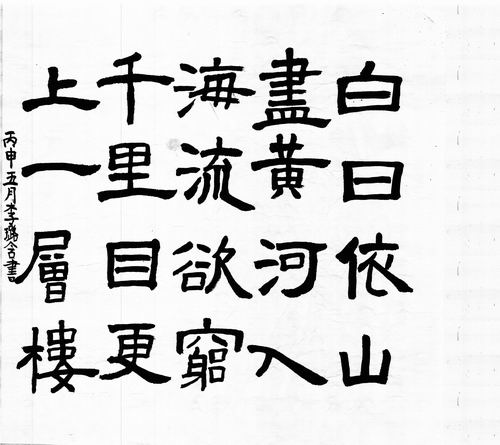 白日依山
盡黃河入
海流欲窮
千里目更
上一層樓
丙申五月李書